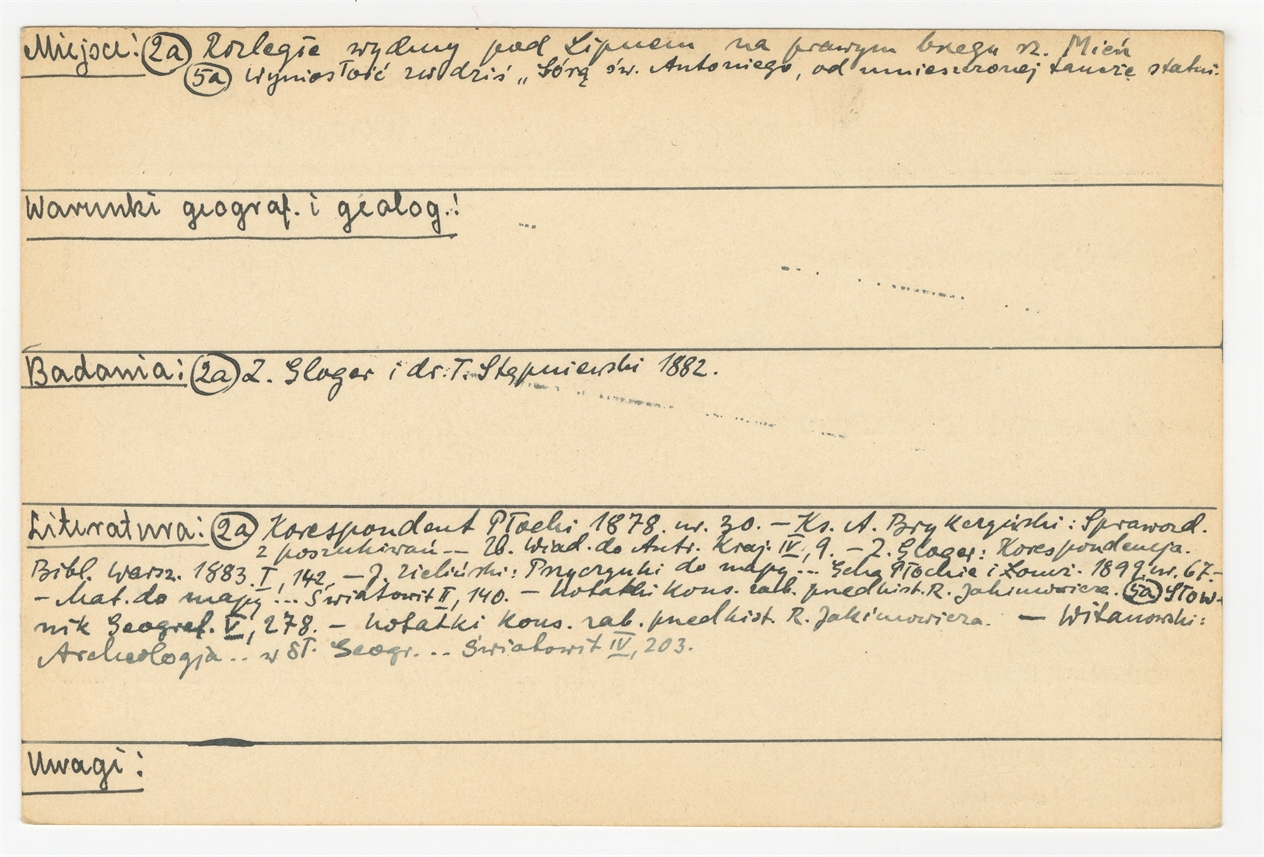 Miejsce: (2a) Rozległe wydmy pod Lipnem na prawym brzegu rz. Mień
(5a) Wyniosłość zw dziś „Górą św. Antoniego, od umieszczonej tamże statui.
Warunki geograf. i geolog.:
Badania: (2a) Z. Gloger i dr. T. Stępniewski 1882.
Literatura: (2a) Korespondent Płocki 1878. nr. 30. – Ks. A. Brykczyński: Sprawozd.
z poszukiwań -- Zb. Wiad. do Antr. Kraj. IV, 9. – Z. Gloger: Korespondencja.
Bibl. Warsz. 1883. I, 142. – J. Zieliński: Przyczynki do mapy ... Echa Płockie i Łomż. 1899. nr. 67. –
– Mat. do mapy ... Światowit II, 140. – Notatki kons. zab. przedhist. R. Jakimowicza. (5a) Słow-
nik Geograf. V, 278. – Notatki kons. zab. przedhist. R. Jakimowicza. – Witanowski:
Archeologja .. w Sł. Geogr. .. Światowit IV, 203.
Uwagi: